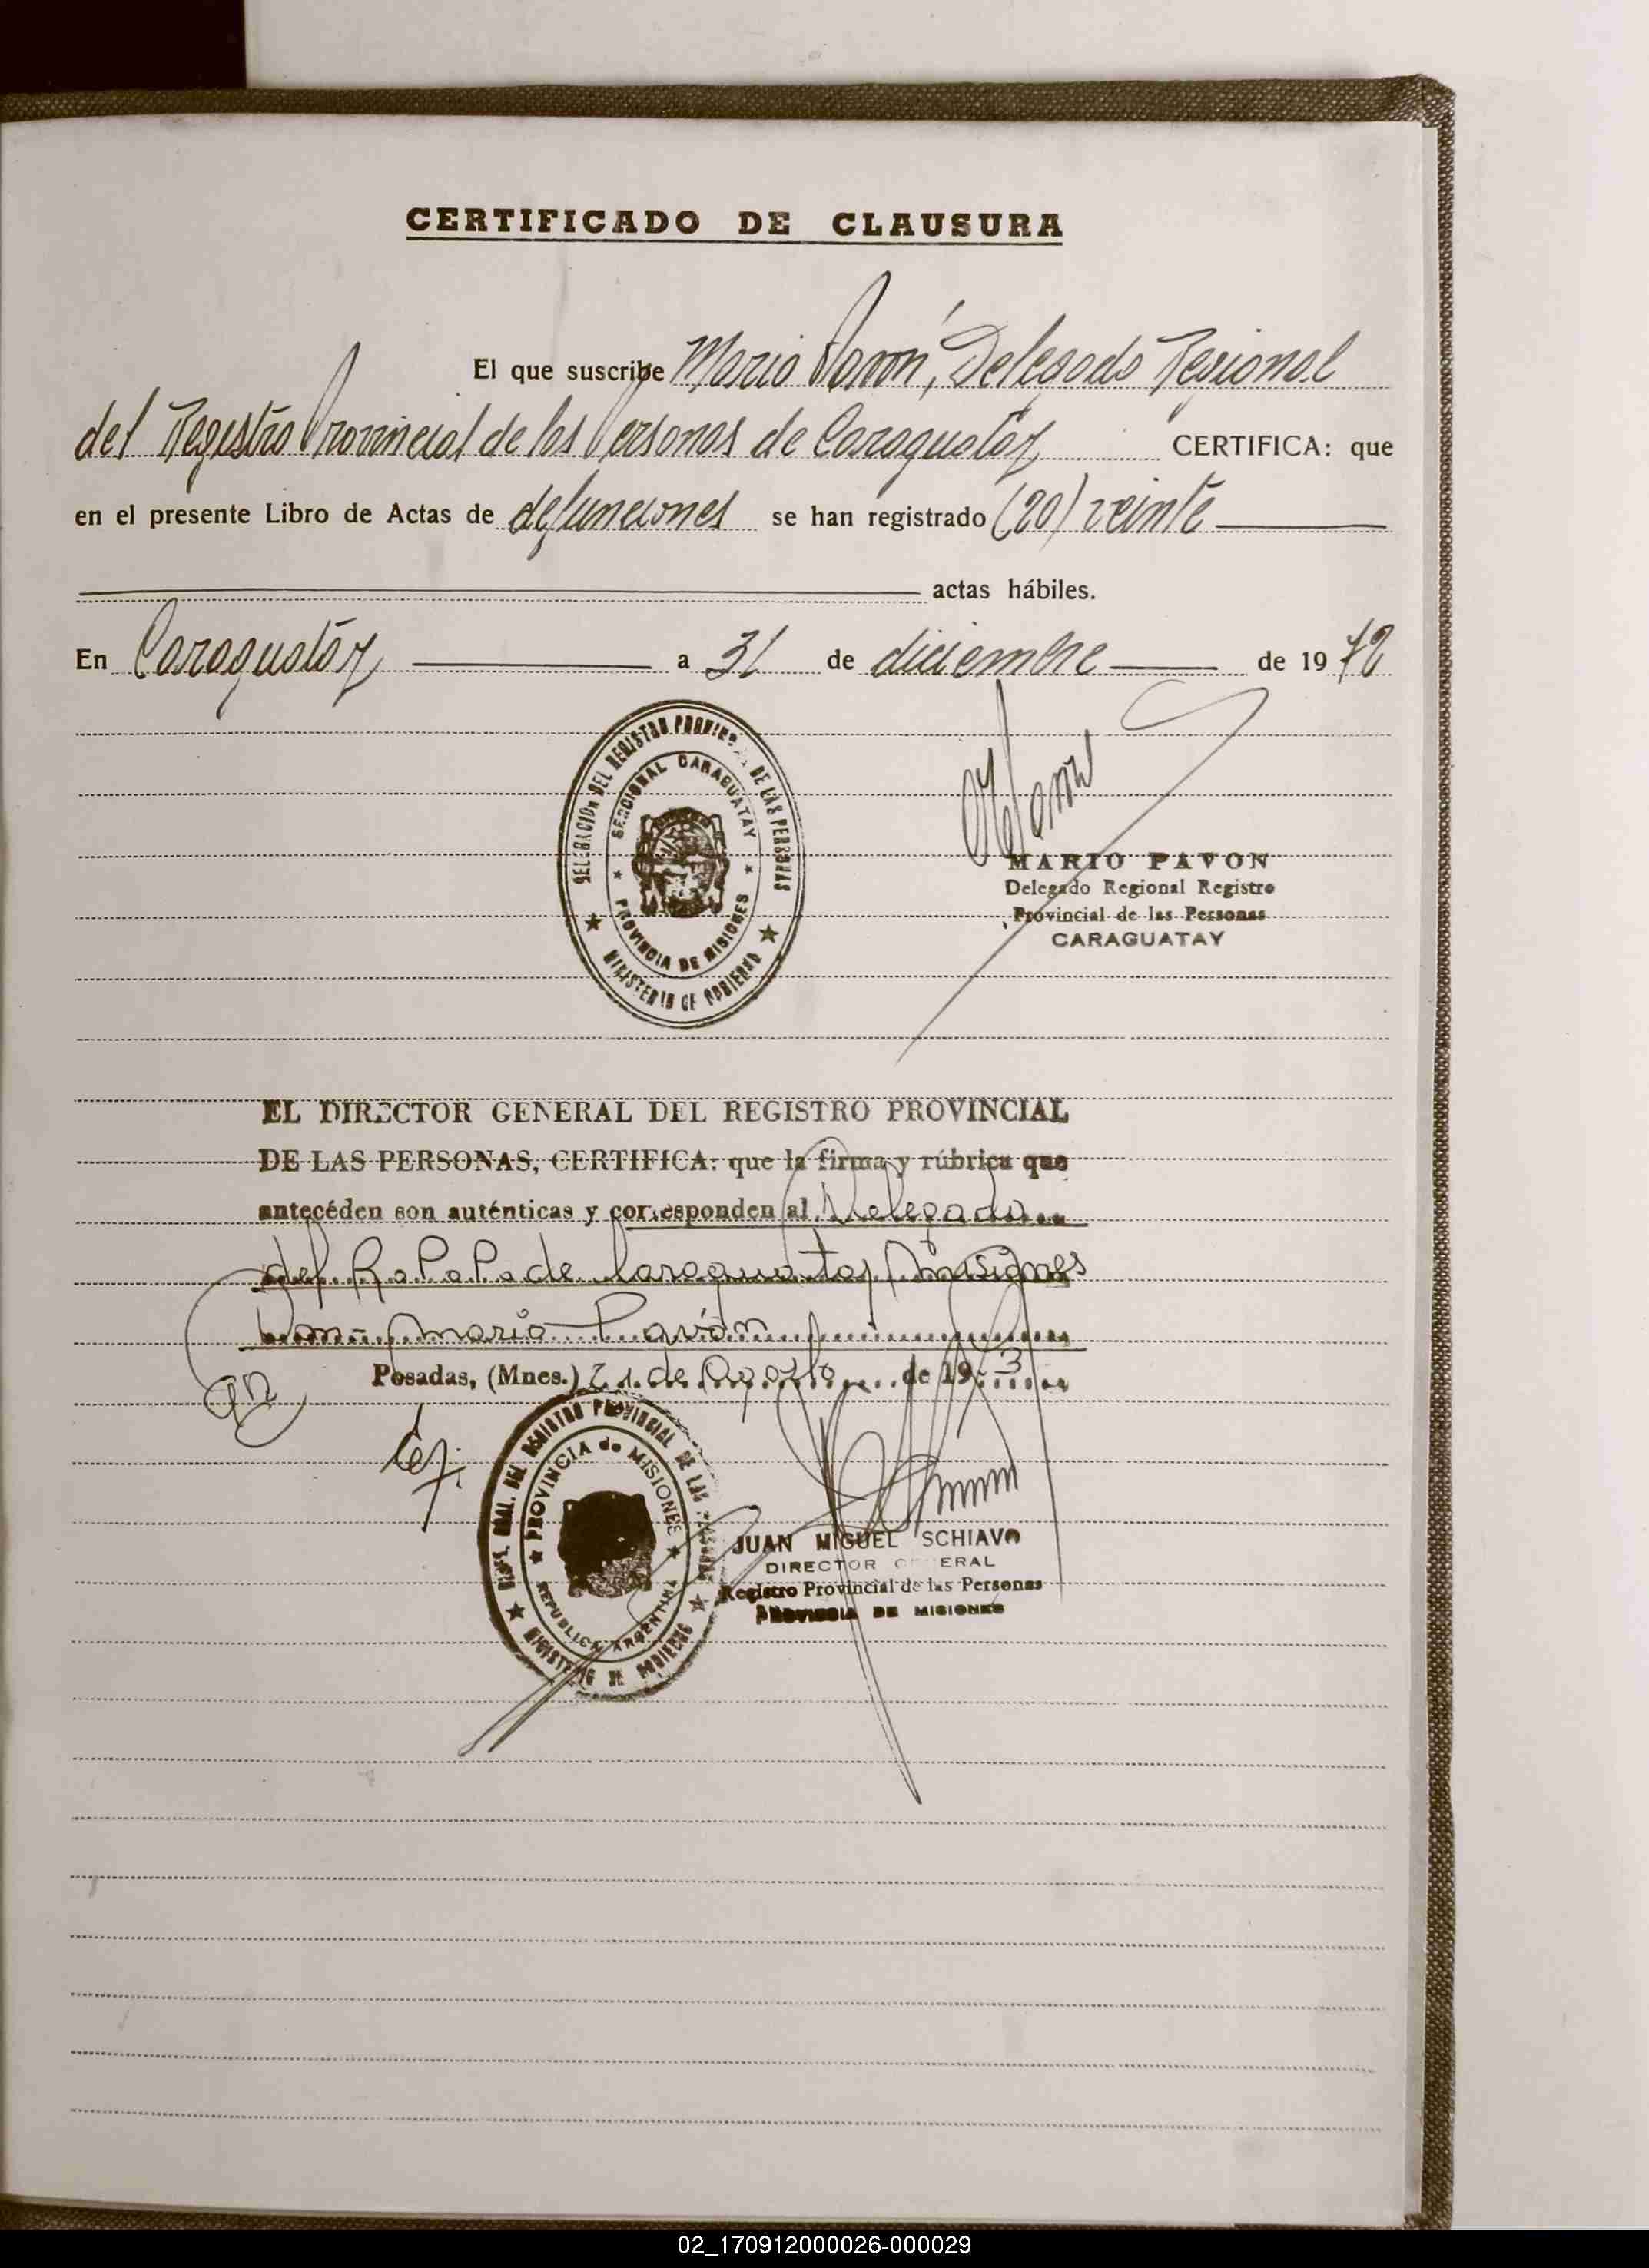 CERTIFICADO DE CLAUSURA
El que suscribe Mario Pavón, Delegado Regional
del Registro Provincial de las Personas de Caraguatay CERTIFICA: que
en el presente Libro de Actas de defunciones se han registrado (20) veinte
actas hábiles.
En Caraguatay a 31 de diciembre de 1972
DELEGACION DEL REGISTRO PROVINCIAL DE LAS PERSONAS
SECCIONAL CARAGUATAY
PROVINCIA DE MISIONES
MINISTERIO DE GOBIERNO
MARIO PAVON
Delegado Regional Registro
Provincial de las Personas
CARAGUATAY
EL DIRECTOR GENERAL DEL REGISTRO PROVINCIAL
DE LAS PERSONAS, CERTIFICA: que la firma y rúbrica que
antecéden son auténticas y corresponden al Delegado
del R.P.P. de Caraguatay Misiones
Don Mario Pavón
Posadas, (Mnes.) 21 de Agosto de 1973
REGISTRO PROVINCIAL DE LAS PERSONAS
PROVINCIA de MISIONES
REPUBLICA ARGENTINA
MINISTERIO DE GOBIERNO
JUAN MIGUEL SCHIAVO
DIRECTOR GENERAL
Registro Provincial de las Personas
PROVINCIA DE MISIONES
02_170912000026-000029